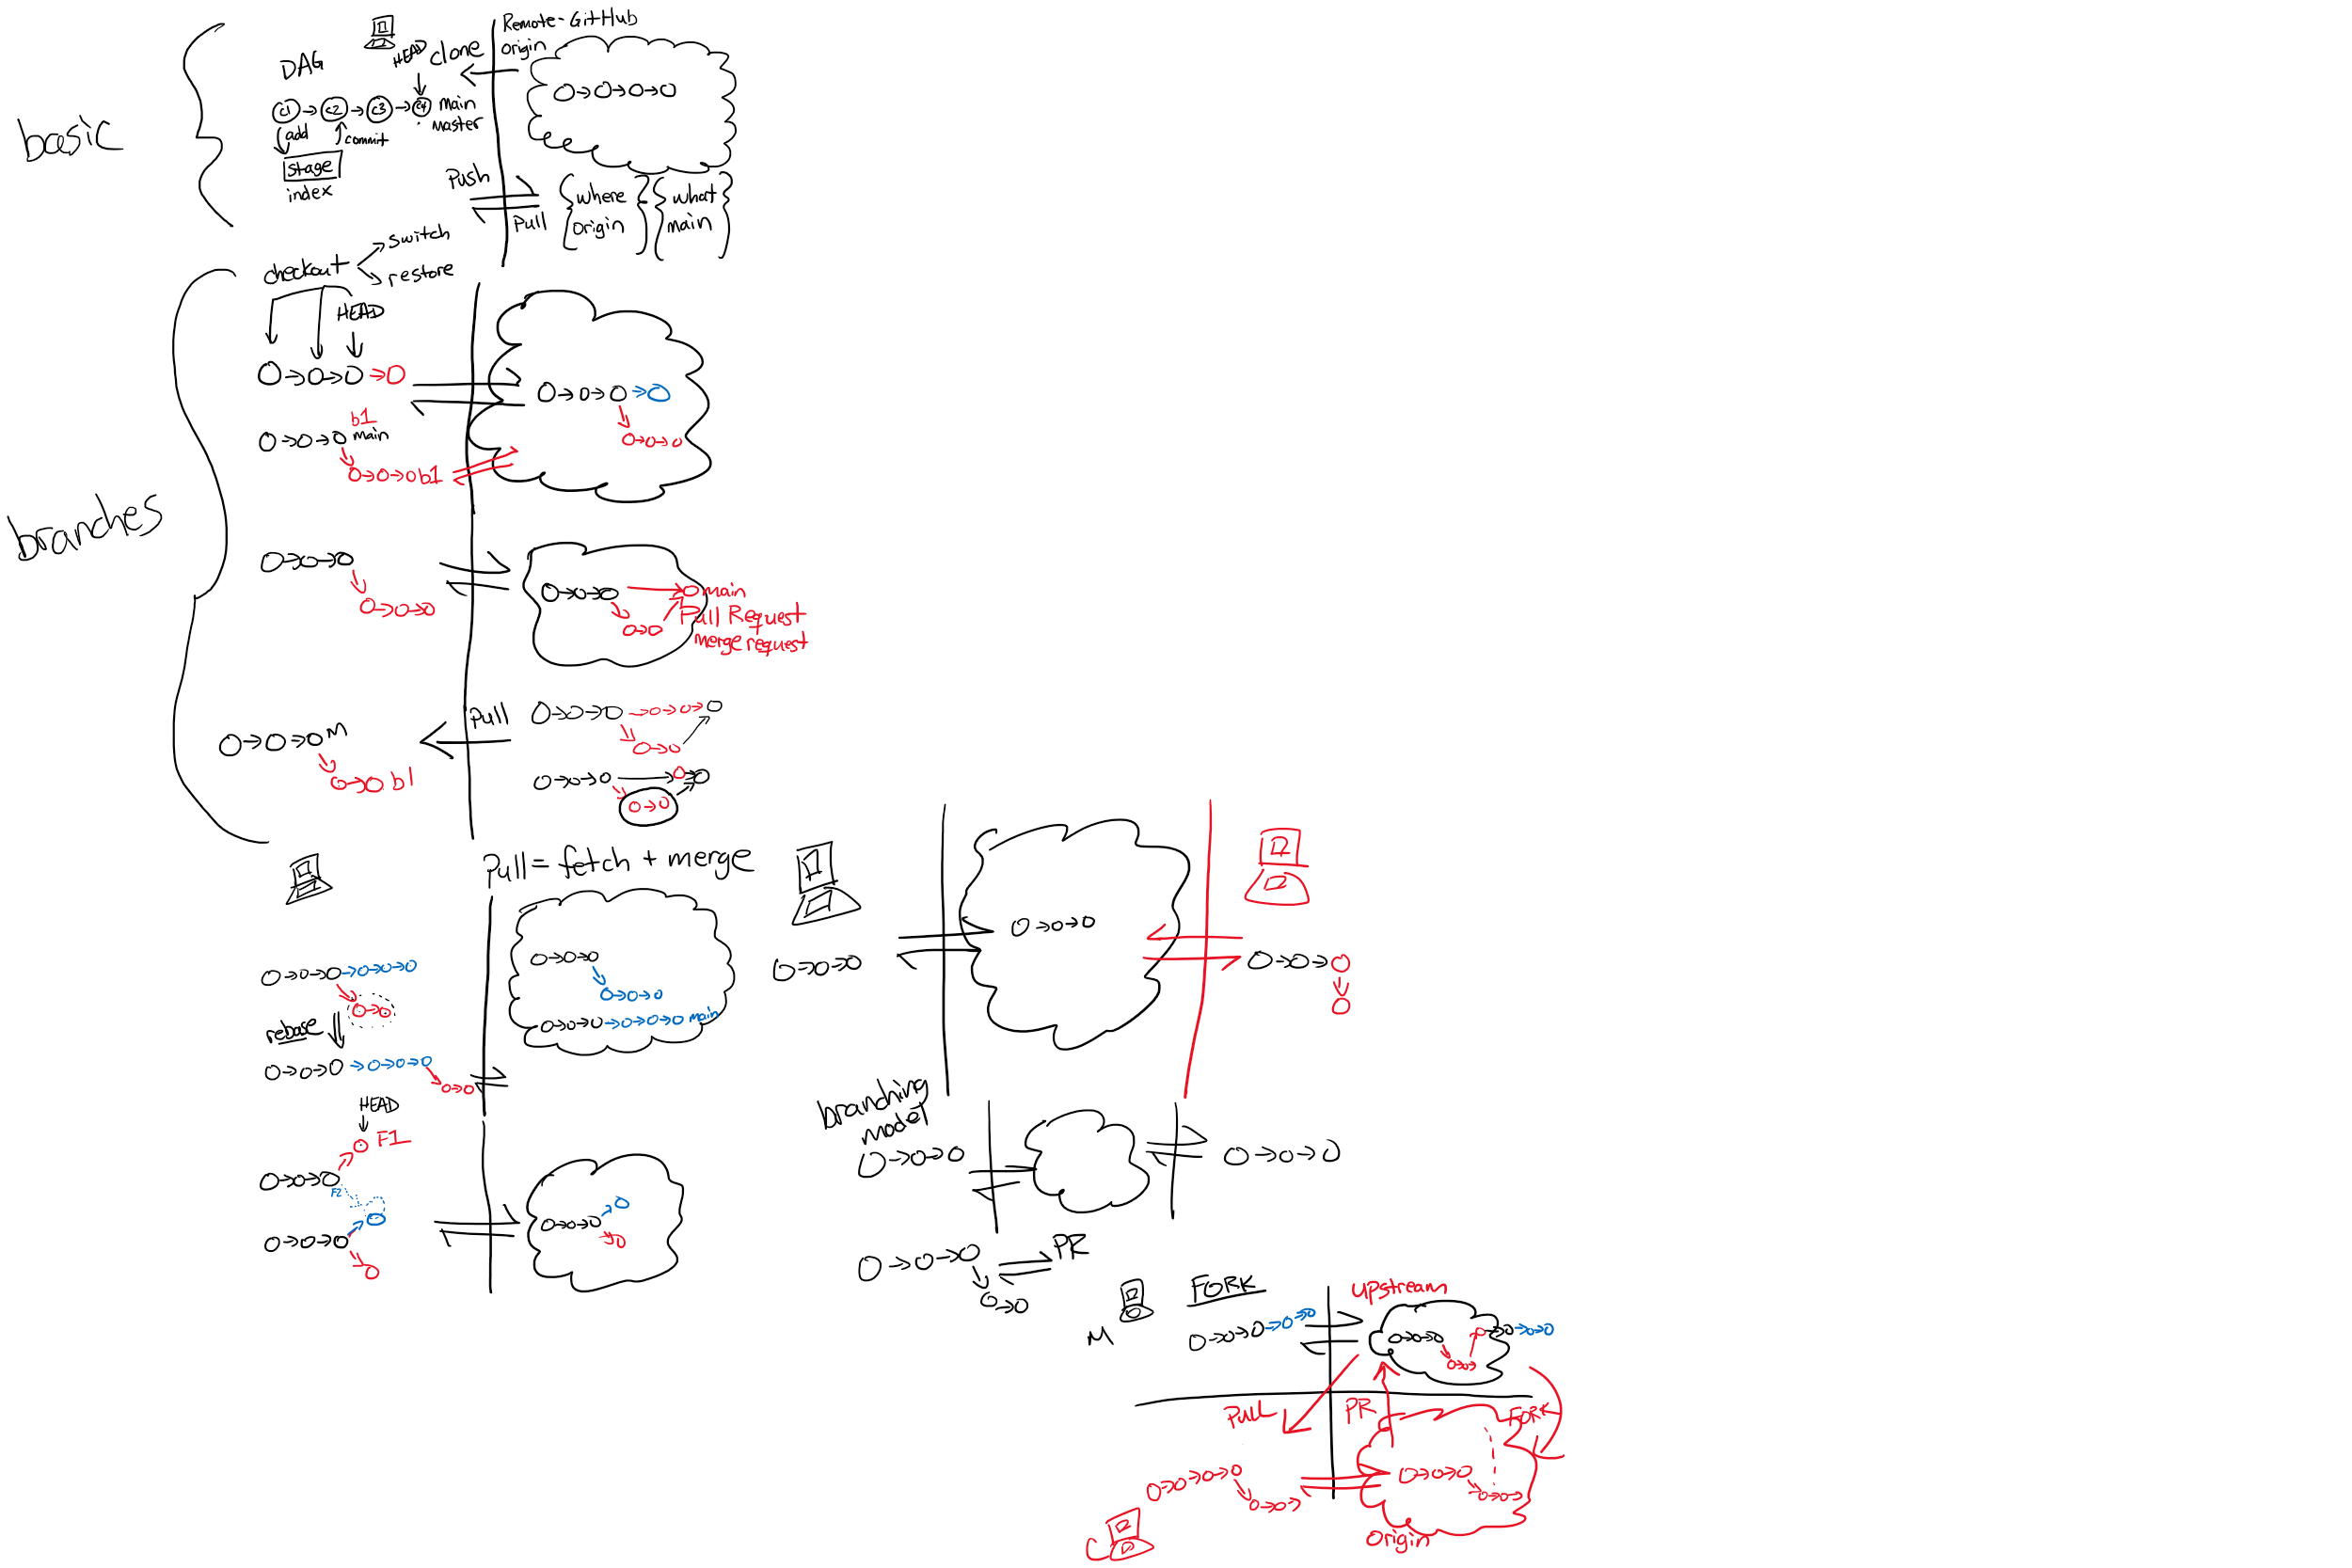 basic
DAG
HEAD
clone
C1 C2 C3 C4 main
master
add
commit
stage
index
Remote-GitHub
origin
Push
Pull
where
origin
what
main
branches
checkout
switch
restore
HEAD
b1
main
b1
main
Pull Request
merge request
Pull
M
b1
Pull = fetch + merge
main
rebase
HEAD
F1
F2
branching
model
PR
M
FORK
upstream
PULL
PR
FORK
C
origin